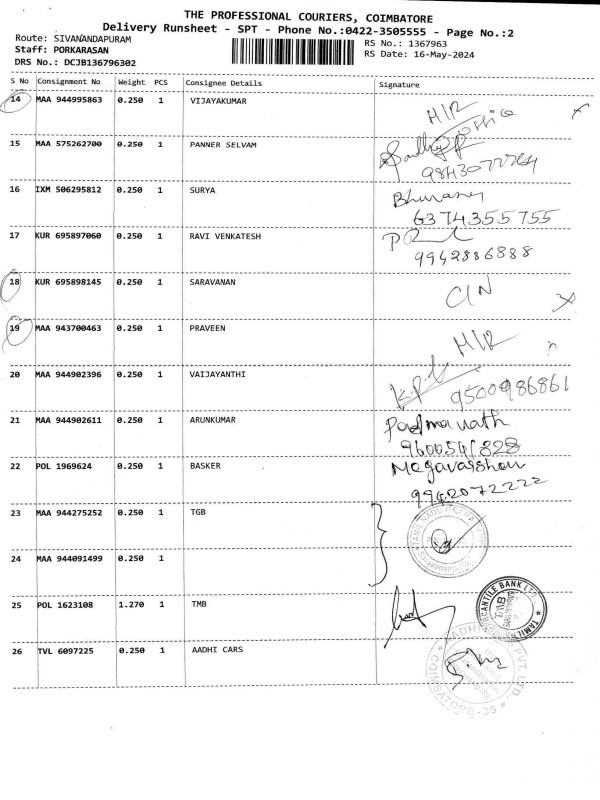 THE PROFESSIONAL COURIERS, COIMBATORE
Delivery Runsheet - SPT - Phone No.:0422-3505555 - Page No.:2
Route: SIVANANDAPURAM
RS No.: 1367963
Staff: PORKARASAN
RS Date: 16-May-2024
DRS No.: DCJB136796302
S No Consignment No Weight PCS Consignee Details Signature
14 MAA 944995863 0.250 1 VIJAYAKUMAR H/R
office
15 MAA 575262700 0.250 1 PANNER SELVAM
16 IXM 506295812 0.250 1 SURYA
6374355755
17 KUR 695897060 0.250 1 RAVI VENKATESH
9942886888
18 KUR 695898145 0.250 1 SARAVANAN C/N
19 MAA 943700463 0.250 1 PRAVEEN H/R
20 MAA 944902396 0.250 1 VAIJAYANTHI 9500986861
21 MAA 944902611 0.250 1 ARUNKUMAR Padmanath
22 POL 1969624 0.250 1 BASKER
9942072222
23 MAA 944275252 0.250 1 TGB
24 MAA 944091499 0.250 1
25 POL 1623108 1.270 1 TMB
TMB
26 TVL 6097225 0.250 1 AADHI CARS